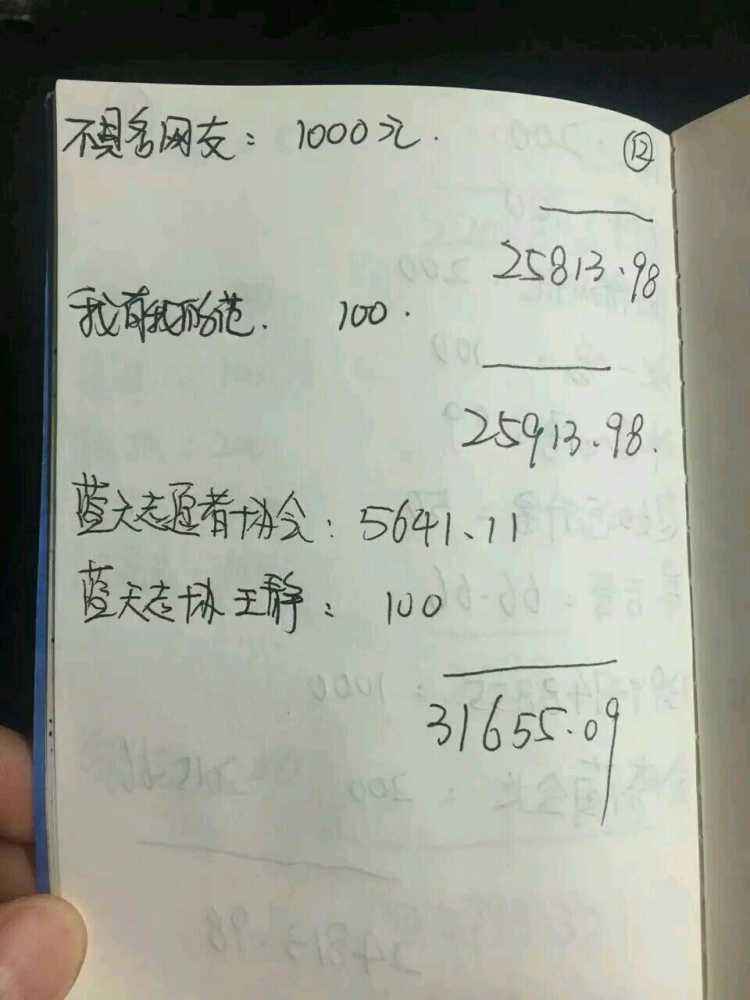 不具名网友: 1000元.
⑫
25813.98
我有我的范. 100.
25913.98.
蓝天志愿者协会: 5641.11
蓝天志协王静: 100
31655.09